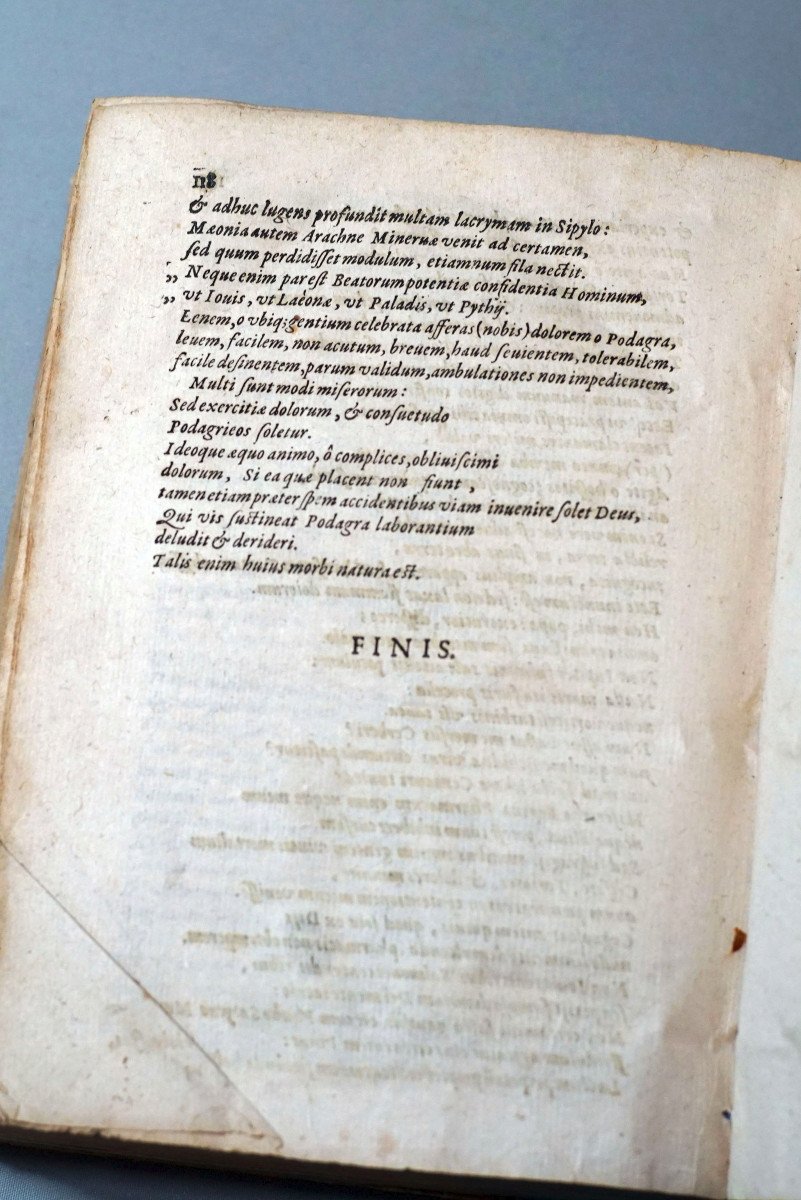 118
& adhuc lugens profundit multam lacrymam in Sipylo:
Mæonia autem Arachne Mineruæ venit ad certamen,
sed quum perdidisset modulum, etiamnum fila nectit.
„ Neque enim par est Beatorum potentiæ confidentia Hominum,
„ vt Iouis, vt Latonæ, vt Paladis, vt Pythij.
Lenem, o vbiq; gentium celebrata afferas (nobis) dolorem o Podagra,
leuem, facilem, non acutum, breuem, haud seuientem, tolerabilem,
facile desinentem, parum validum, ambulationes non impedientem,
Multi sunt modi miserorum:
Sed exercitiæ dolorum, & consuetudo
Podagricos soletur.
Ideoque æquo animo, ô complices, obliuiscimi
dolorum, Si ea quæ placent non fiunt,
tamen etiam præter spem accidentibus viam inuenire solet Deus,
Qui vis sustineat Podagra laborantium
deludit & derideri.
Talis enim huius morbi natura est.
FINIS.